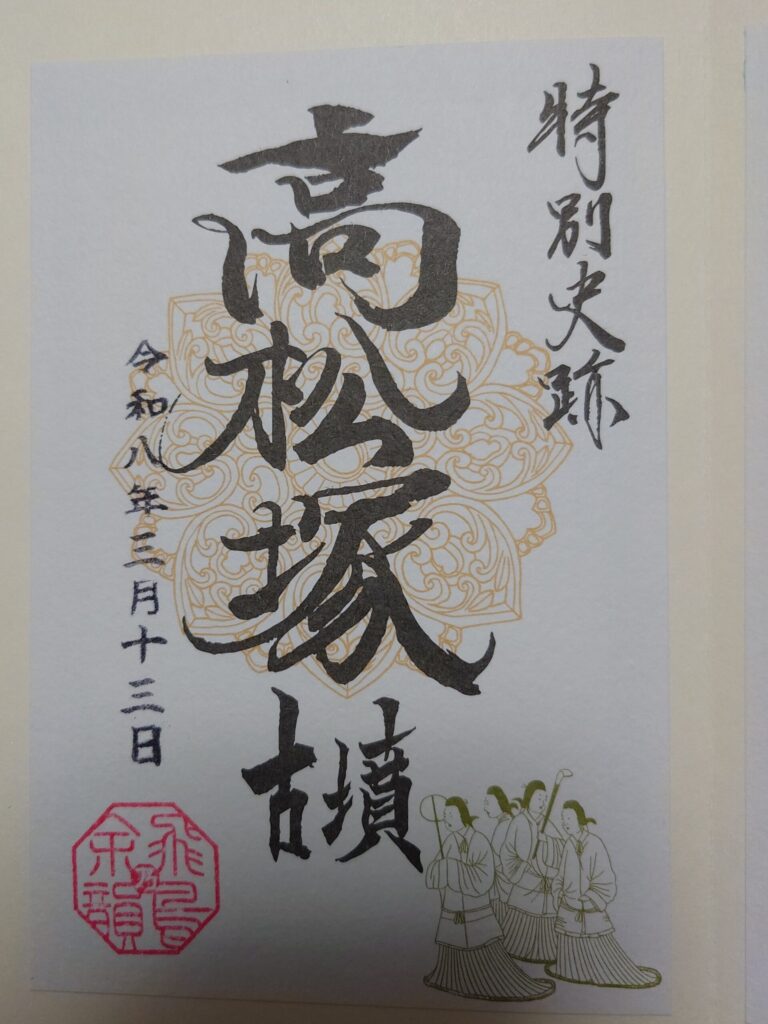 特別史跡
高松塚古墳
令和八年三月十三日
飛鳥乃余韻